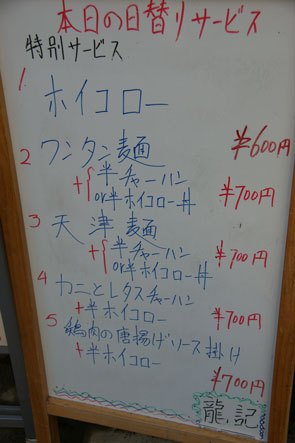 本日の日替りサービス
特別サービス
1
ホイコロー
¥600円
2 ワンタン麺
+{半チャーハン
or半ホイコロー丼 ¥700円
3 天津麺
+{半チャーハン
or半ホイコロー丼 ¥700円
4 カニとレタスチャーハン
+半ホイコロー ¥700円
5 鶏肉の唐揚げソース掛け
+半ホイコロー
¥700円
龍記